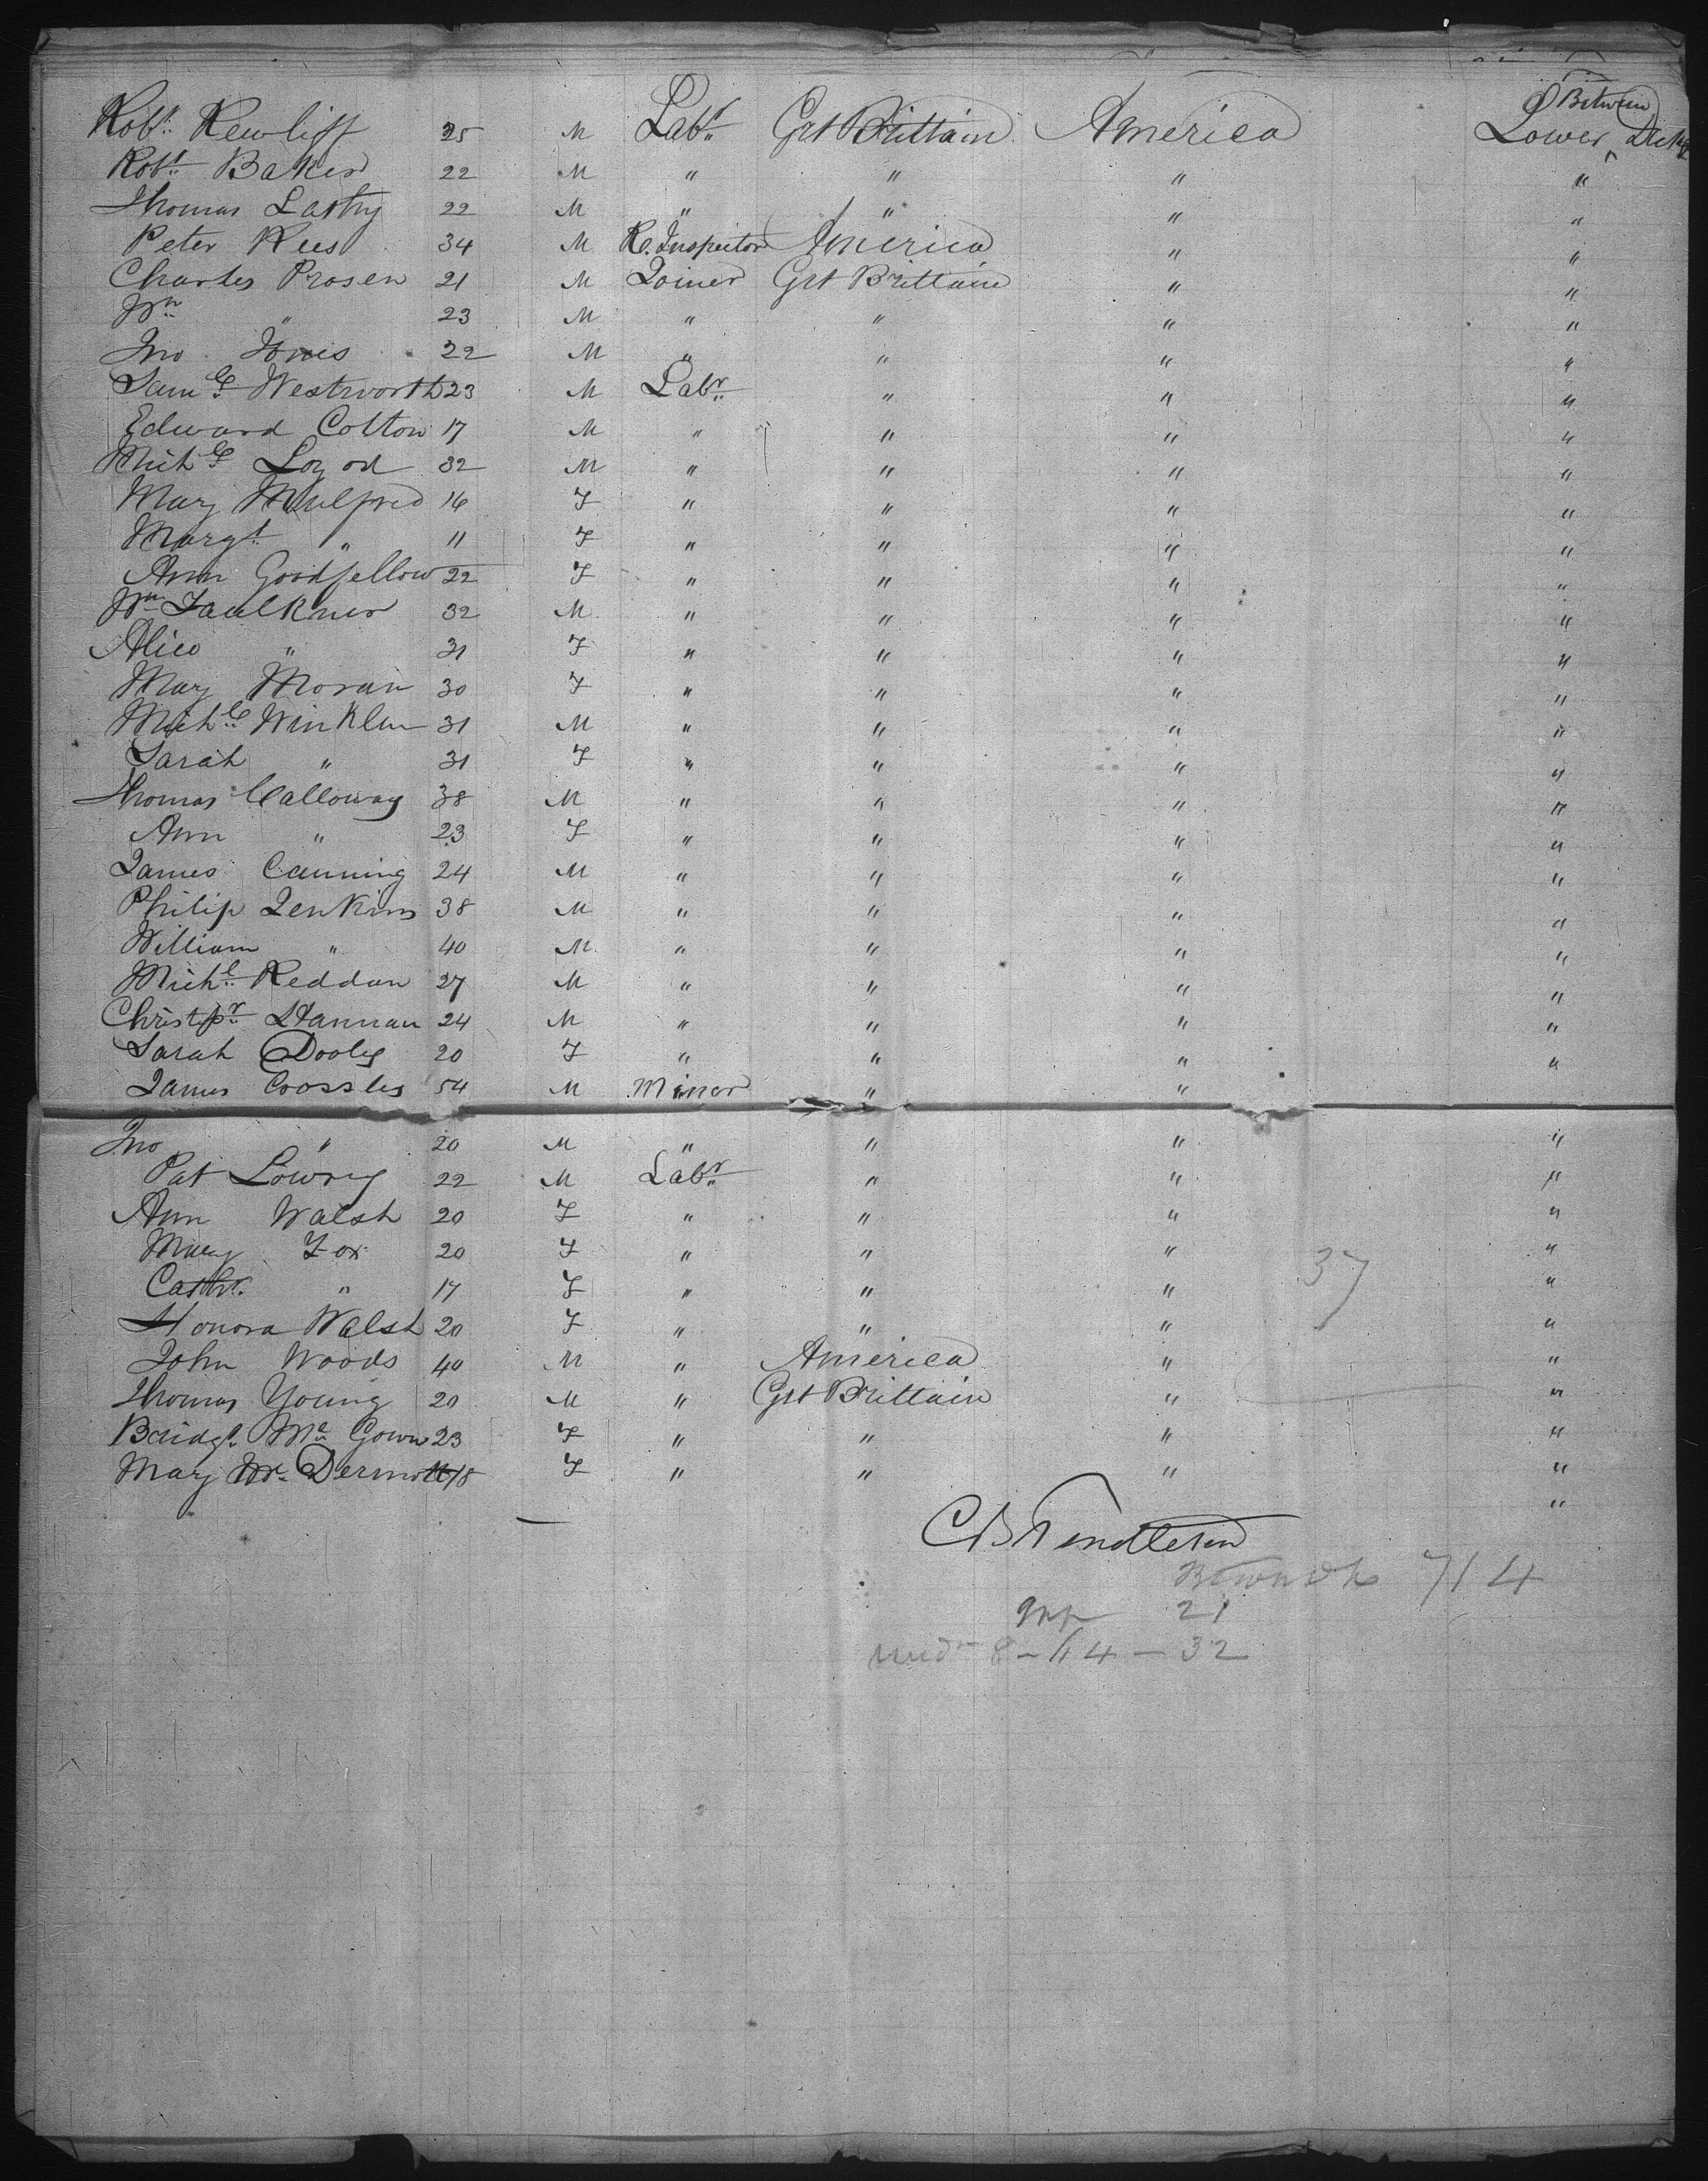 Between
Robt. Rewliff 25 M Labr. Grt Brittain America Lower Deck
Robt. Baker 22 M " " " "
Thomas Lasthy 22 M " " " "
Peter Rees 34 M R. Inspector America " "
Charles Prosen 21 M Joiner Grt Brittain " "
Wm. " 23 M " " " "
Jno. Jones 22 M " " " "
Saml. Westworth 23 M Labr. " " "
Edward Cotton 17 M " " " "
Michl. 32 M " " " "
Mary 16 F " " " "
Margt. " 11 F " " " "
Ann Goodfellow 22 F " " " "
Wm. Faulkner 32 M " " " "
Alice " 31 F " " " "
Mary Moran 30 F " " " "
Michl. Winklen 31 M " " " "
Sarah " 31 F " " " "
Thomas Calloway 38 M " " " "
Ann " 23 F " " " "
James Canning 24 M " " " "
Philip Jenkins 38 M " " " "
William " 40 M " " " "
Michl. Reddan 27 M " " " "
Christpr. Hannan 24 M " " " "
Sarah Dooley 20 F " " " "
James Crossley 54 M Miner " "
Jno " 20 M " " " "
Pat Lowry 22 M Labr. " " "
Ann Walsh 20 F " " " "
Mary Fox 20 F " " " "
Cathr. " 17 F " " " "
37
Honora Walsh 20 F " " " "
John Woods 40 M " America " "
Thomas Young 20 M " Grt Brittain " "
Bridgt. Mc Gown 23 F " " " "
Mary Mc. Dermott 18 F " " " "
"
C B Pendleton
714
21
8 - 14 - 32